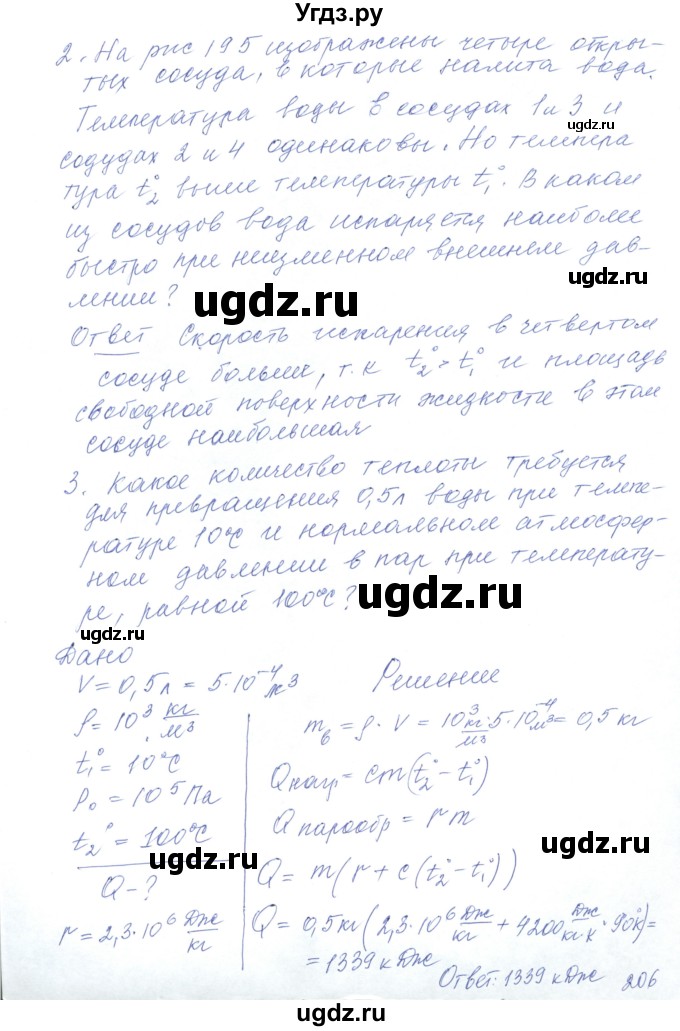 Угдз.ру
2. На рис 195 изображены четыре откры-
тых сосуда, в которые налита вода.
Температура воды в сосудах 1 и 3 и
ugdz.ru
содудах 2 и 4 одинаковы. Но темпера
тура t₂° выше температуры t₁°. В каком
из сосудов вода испаряется наиболее
быстро при неизменном внешнем дав-
лении?
ugdz.ru
ugdz.ru
Ответ Скорость испарения в четвертом
сосуде больше, т.к t₂° > t₁° и площадь
свободной поверхности жидкости в этом
сосуде наибольшая
3. Какое количество теплоты требуется
для превращения 0,5л воды при темпе-
ратуре 10°С и нормальном атмосфер-
ном давлении в пар при температу-
ре, равной 100°С?
ugdz.ru
ugdz.ru
Дано
V = 0,5л = 5·10⁻⁴м³
Решение
ρ = 10³ кг/м³
m_в = ρ · V = 10³ кг/м³ · 5·10⁻⁴м³ = 0,5 кг
t₁° = 10°С
Q нагр = cm(t₂° − t₁°)
P₀ = 10⁵ Па
Q парообр = r m
t₂° = 100°С
ugdz.ru
ugdz.ru
Q − ?
Q = m(r + c(t₂° − t₁°))
r = 2,3·10⁶ Дж/кг
Q = 0,5кг(2,3·10⁶ Дж/кг + 4200 Дж/кг·К · 90°К) =
= 1339 кДж
ugdz.ru
ugdz.ru
Ответ: 1339 кДж
206
ugdz.ru